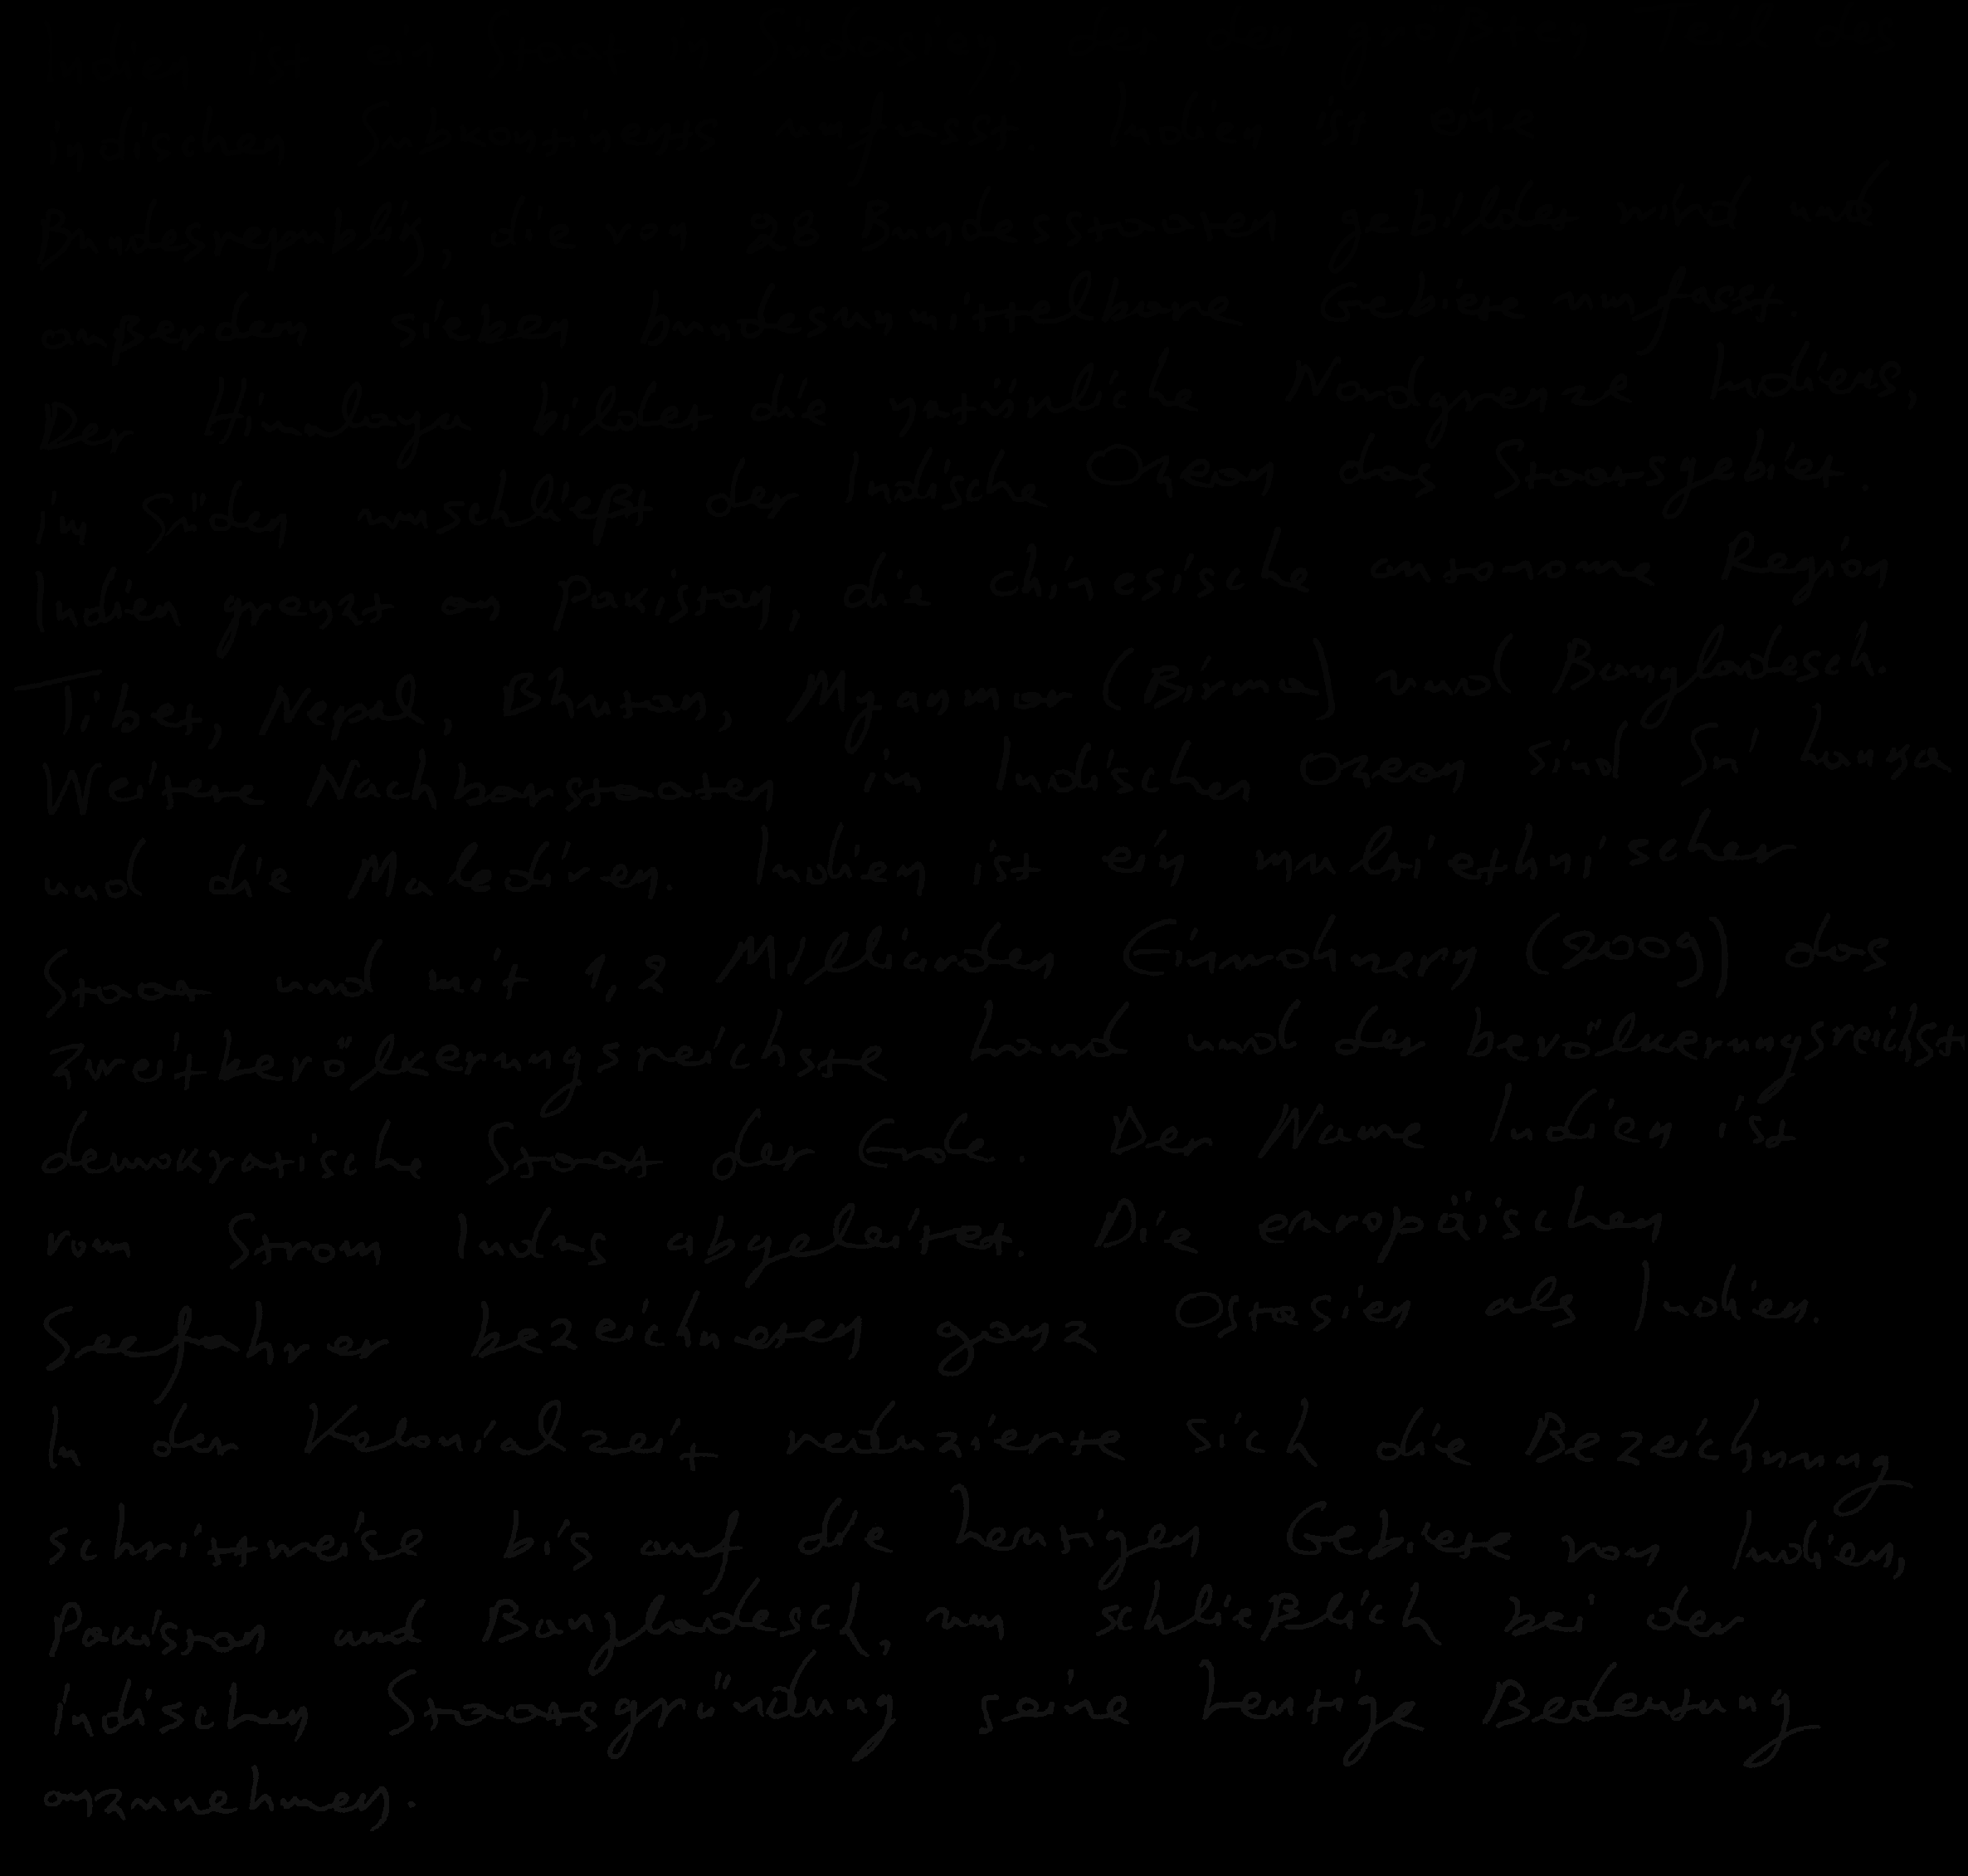 Indien ist ein Staat in Südasien, der den größten Teil des
indischen Subkontinents umfasst. Indien ist eine
Bundesrepublik, die von 28 Bundesstaaten gebildet wird und
außerdem sieben bundesunmittelbare Gebiete umfasst.
Der Himalaya bildet die natürliche Nordgrenze Indiens,
im Süden umschließt der Indische Ozean das Staatsgebiet.
Indien grenzt an Pakistan, die chinesische autonome Region
Tibet, Nepal, Bhutan, Myanmar (Birma) und Bangladesch.
Weitere Nachbarstaaten im Indischen Ozean sind Sri Lanka
und die Malediven. Indien ist ein multiethnischer
Staat und mit 1,2 Milliarden Einwohnern (2009) das
zweitbevölkerungsreichste Land und der bevölkerungsreichst
demokratische Staat der Erde. Der Name Indien ist
vom Strom Indus abgeleitet. Die europäischen
Seefahrer bezeichneten ganz Ostasien als Indien.
In der Kolonialzeit reduzierte sich die Bezeichnung
schrittweise bis auf die heutigen Gebiete von Indien,
Pakistan und Bangladesch, um schließlich bei der
indischen Staatsgründung seine heutige Bedeutung
anzunehmen.